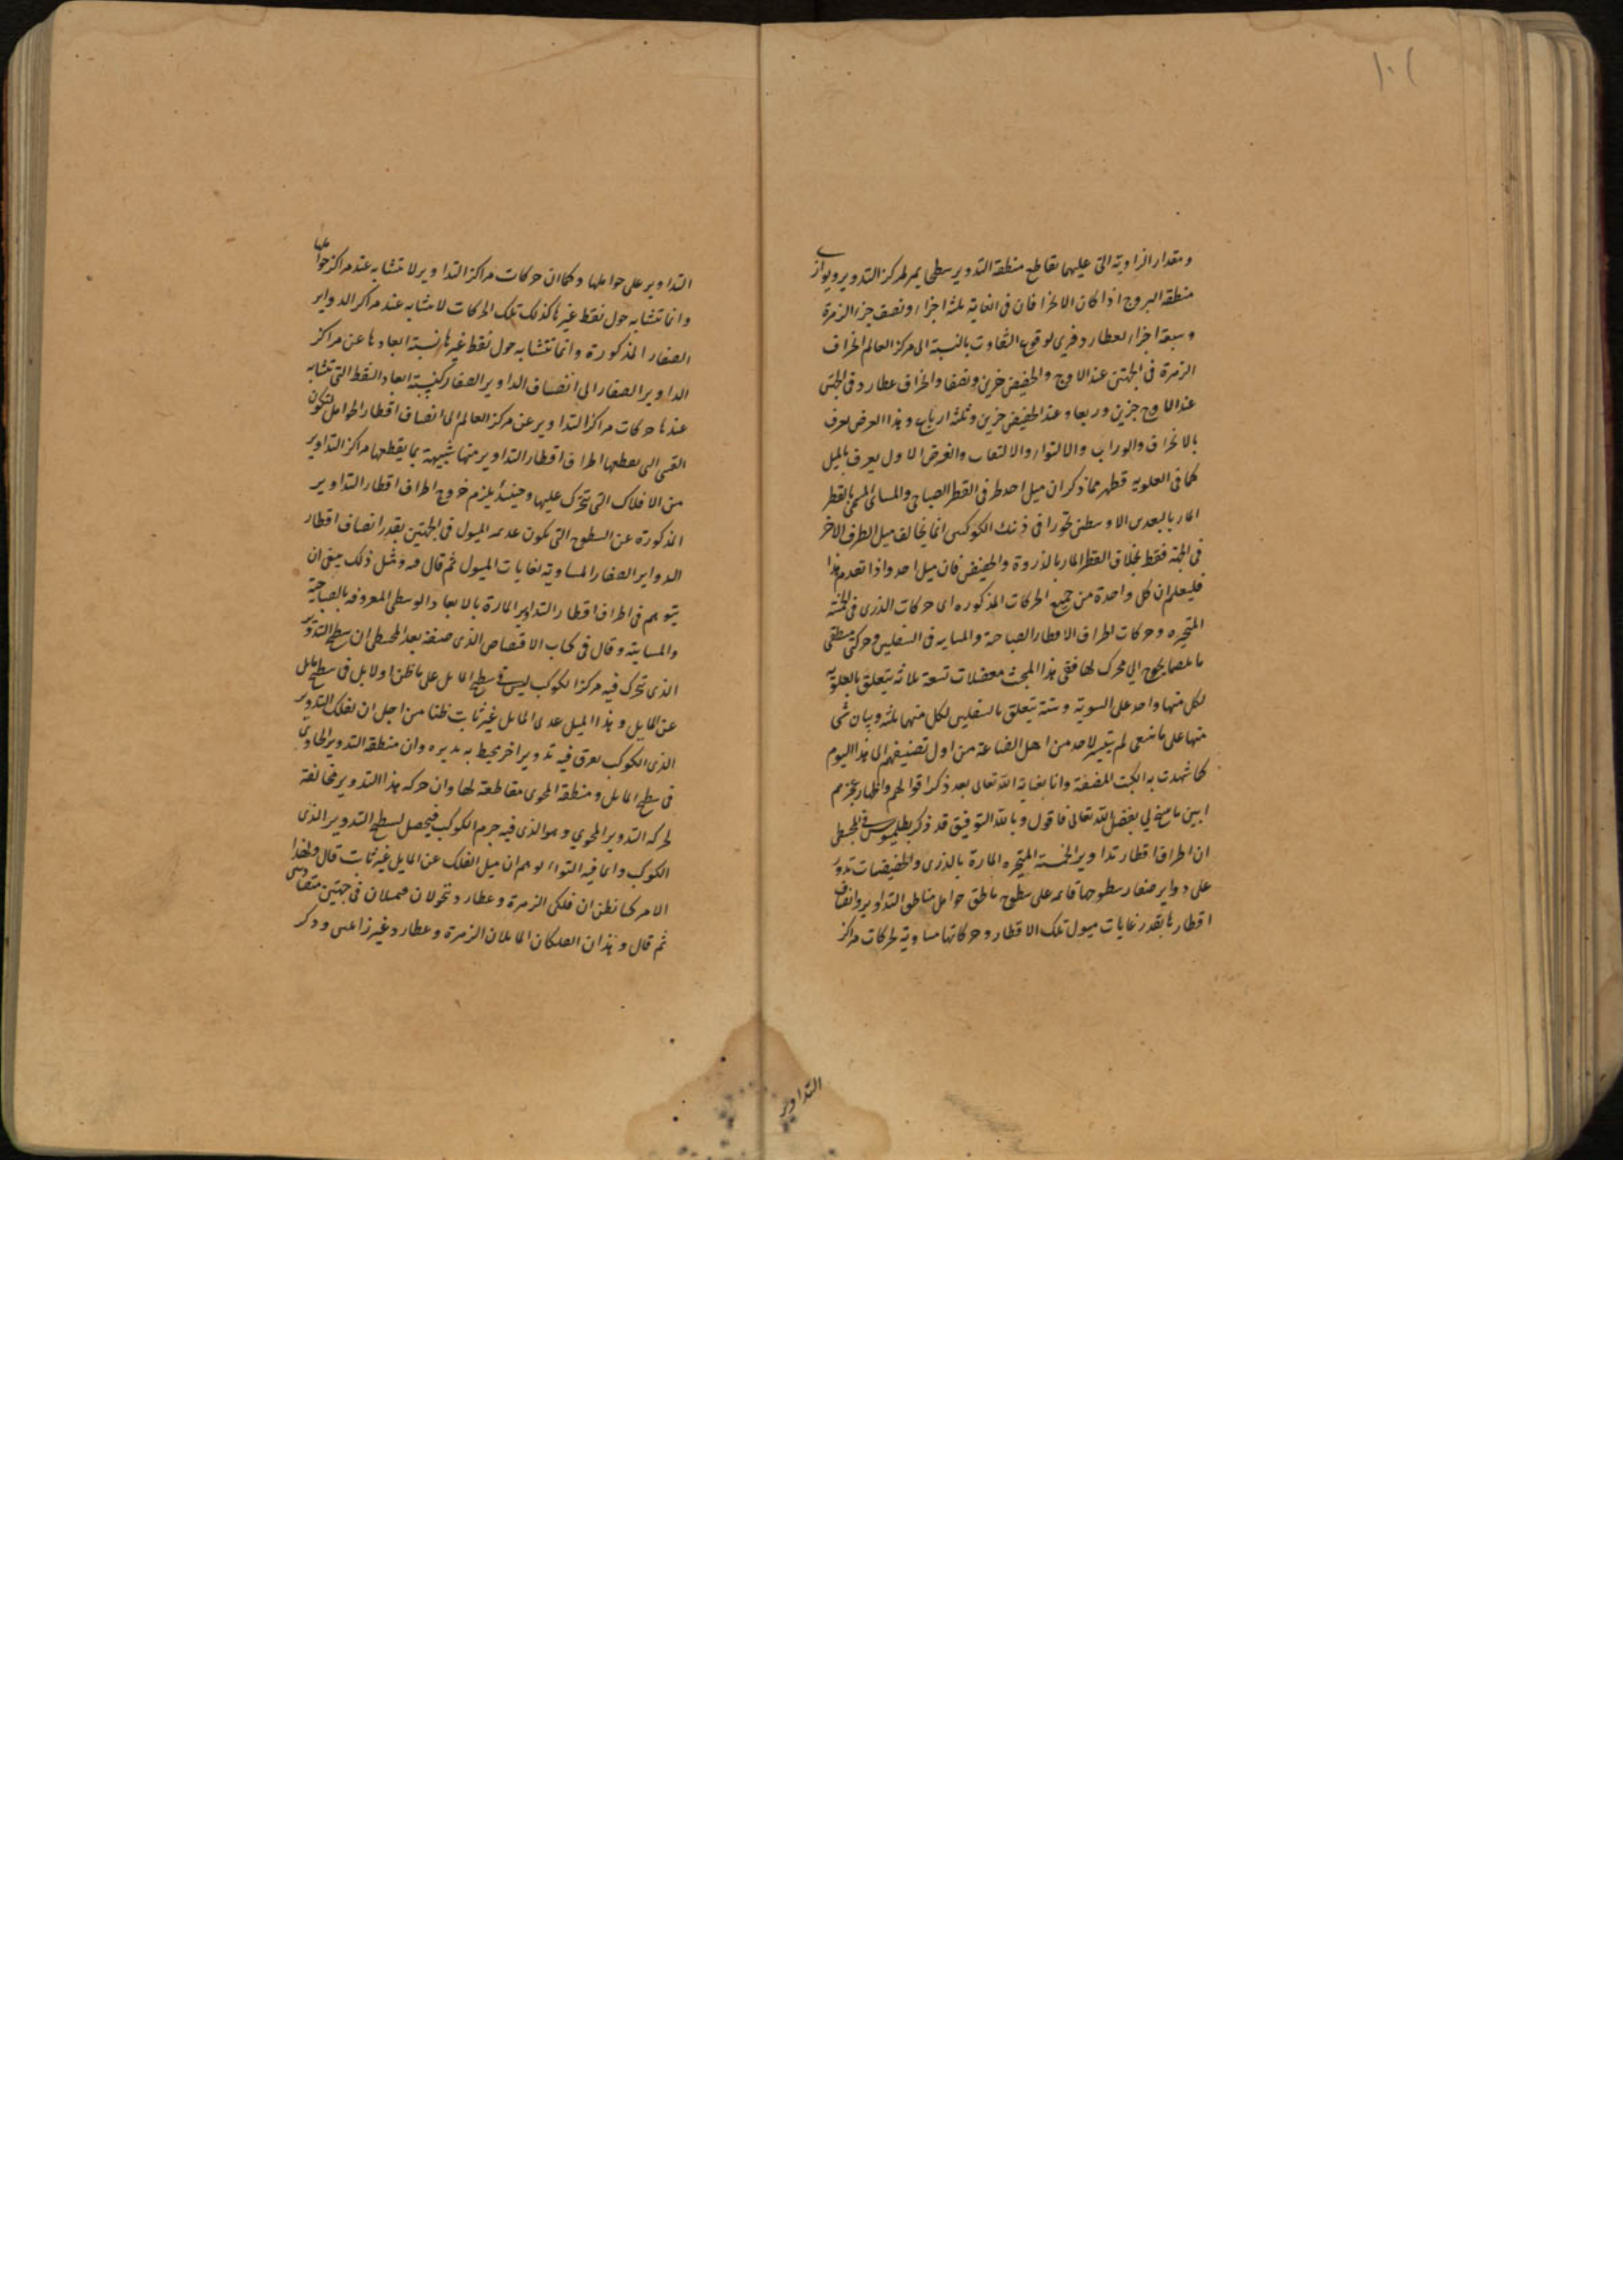 ١٠١
ومقدار الزاوية التى عليها تقاطع منطقة التدوير سطحى يمر لمركز التدوير ويوازى
منطقة البروج اذا كان الانحراف فان فى الغاية ثلثة اجزاء ونصف جزء الزهرة
وسبعة اجزاء لعطارد فيرى لوقوع التفاوت بالنسبة الى مركز العالم انحراف
الزهرة فى الجهتين عند الاوج والحضيض جزئين ونصفا وانحراف عطارد فى الجهتين
عند الاوج جزئين وربعا وعند الحضيض جزئين وثلثة ارباع وهذا العرض يعرف
بالانحراف والوراب والالتواء والالتفاف والعرض الاول يعرف بالميل
كما فى العلوية فظهر مما ذكر ان ميل احد طرفى القطر الصباحى والمسائى المسمى بالقطر
المار بالبعدين الاوسطين تجوزا فى ذينك الكوكبين انما يخالف ميل الطرف الاخر
فى الجهة فقط بخلاف القطر المار بالذروة والحضيض فان ميل احد واذا تقدم هذا
فليعلم ان كل واحدة من جميع الحركات المذكورة اى حركات الذرى فى الخمسة
المتحيرة وحركات اطراف الاقطار الصباحية والمسايية فى السفليين وحركتى منطقتى
مايليهما يحوج الى محرك لها ففى هذا المبحث معضلات تسعة ثلاثة يتعلق بالعلوية
لكل منها واحد على السوية وستة يتعلق بالسفليين لكل منهما ثلثة وبيان شى
منها على ما ينبغى لم يتيسر لاحد من اهل الصناعة من اول تصنيفهم الى هذا اليوم
كما شهدت به الكتب المصنفة وانا بعناية الله تعالى بعد ذكر اقوالهم واظهار عجزهم
ابين ما سنح لى بفضل الله تعالى فاقول وبالله التوفيق قد ذكر بطلميوس فى المجسطى
ان اطراف اقطار تداوير الخمسة المتحيرة المارة بالذرى والحضيضات تدور
على دواير صغار سطوحها قائمة على سطوح مناطق حوامل مناطق التداوير وانصاف
اقطارها بقدر غايات ميول تلك الاقطار وحركاتها مساوية لحركات مراكز
التداوير
التداوير على حواملها وكما ان حركات مراكز التداوير لا تتشابه عند مراكز حواملها
وانما تتشابه حول نقط غيرها كذلك تلك الحركات لا تتشابه عند مراكز الدواير
الصغار المذكورة وانما تتشابه حول نقط غيرها نسبة ابعادها عن مراكز
الدواير الصغار الى انصاف الدواير الصغار كنسبة ابعاد النقط التى تتشابه
عندها حركات مراكز التداوير عن مركز العالم الى انصاف اقطار الحوامل لتكون
القسى التى يقطعها اطراف اقطار التداوير منها شبيهة بما يقطعها مراكز التداوير
من الافلاك التى تتحرك عليها وحينئذ يلزم خروج اطراف اقطار التداوير
المذكورة عن السطوح التى تكون عديمة الميول فى الجهتين بقدر انصاف اقطار
الدواير الصغار المساوية لغايات الميول ثم قال فيه ومثل ذلك ينبغى ان
يتوهم فى اطراف اقطار التداوير المارة بالابعاد الوسطى المعروفة بالصباحية
والمسايية وقال فى كتاب الاقتصاص الذى صنفه بعد المجسطى ان سطح التدوير
الذى تتحرك فيه مركز الكوكب ليس فى سطح المايل على ما ظن اولا بل فى سطح مايل
عن المايل وهذا الميل عند المايل غير ثابت ظنا من اجل ان لفلك التدوير
الذى الكوكب مغرق فيه تدوير اخر يحيط به يديره وان منطقة التدوير الحاوى
فى سطح المايل ومنطقة المحوى مقاطعة لها وان حركة هذا التدوير مخالفة
لحركة التدوير المحوى وهو الذى فيه جرم الكوكب فيحصل لسطح التدوير الذى
الكوكب وانما فيه التواء لوهم ان ميل الفلك عن المايل غير ثابت قال ولهذا
الامر كما نظن ان فلكى الزهرة وعطارد يتحولان فيميلان فى جهتين متقابلتين
ثم قال وهذان الفلكان المايلان الزهرة وعطارد وغير زاعمين وذكر